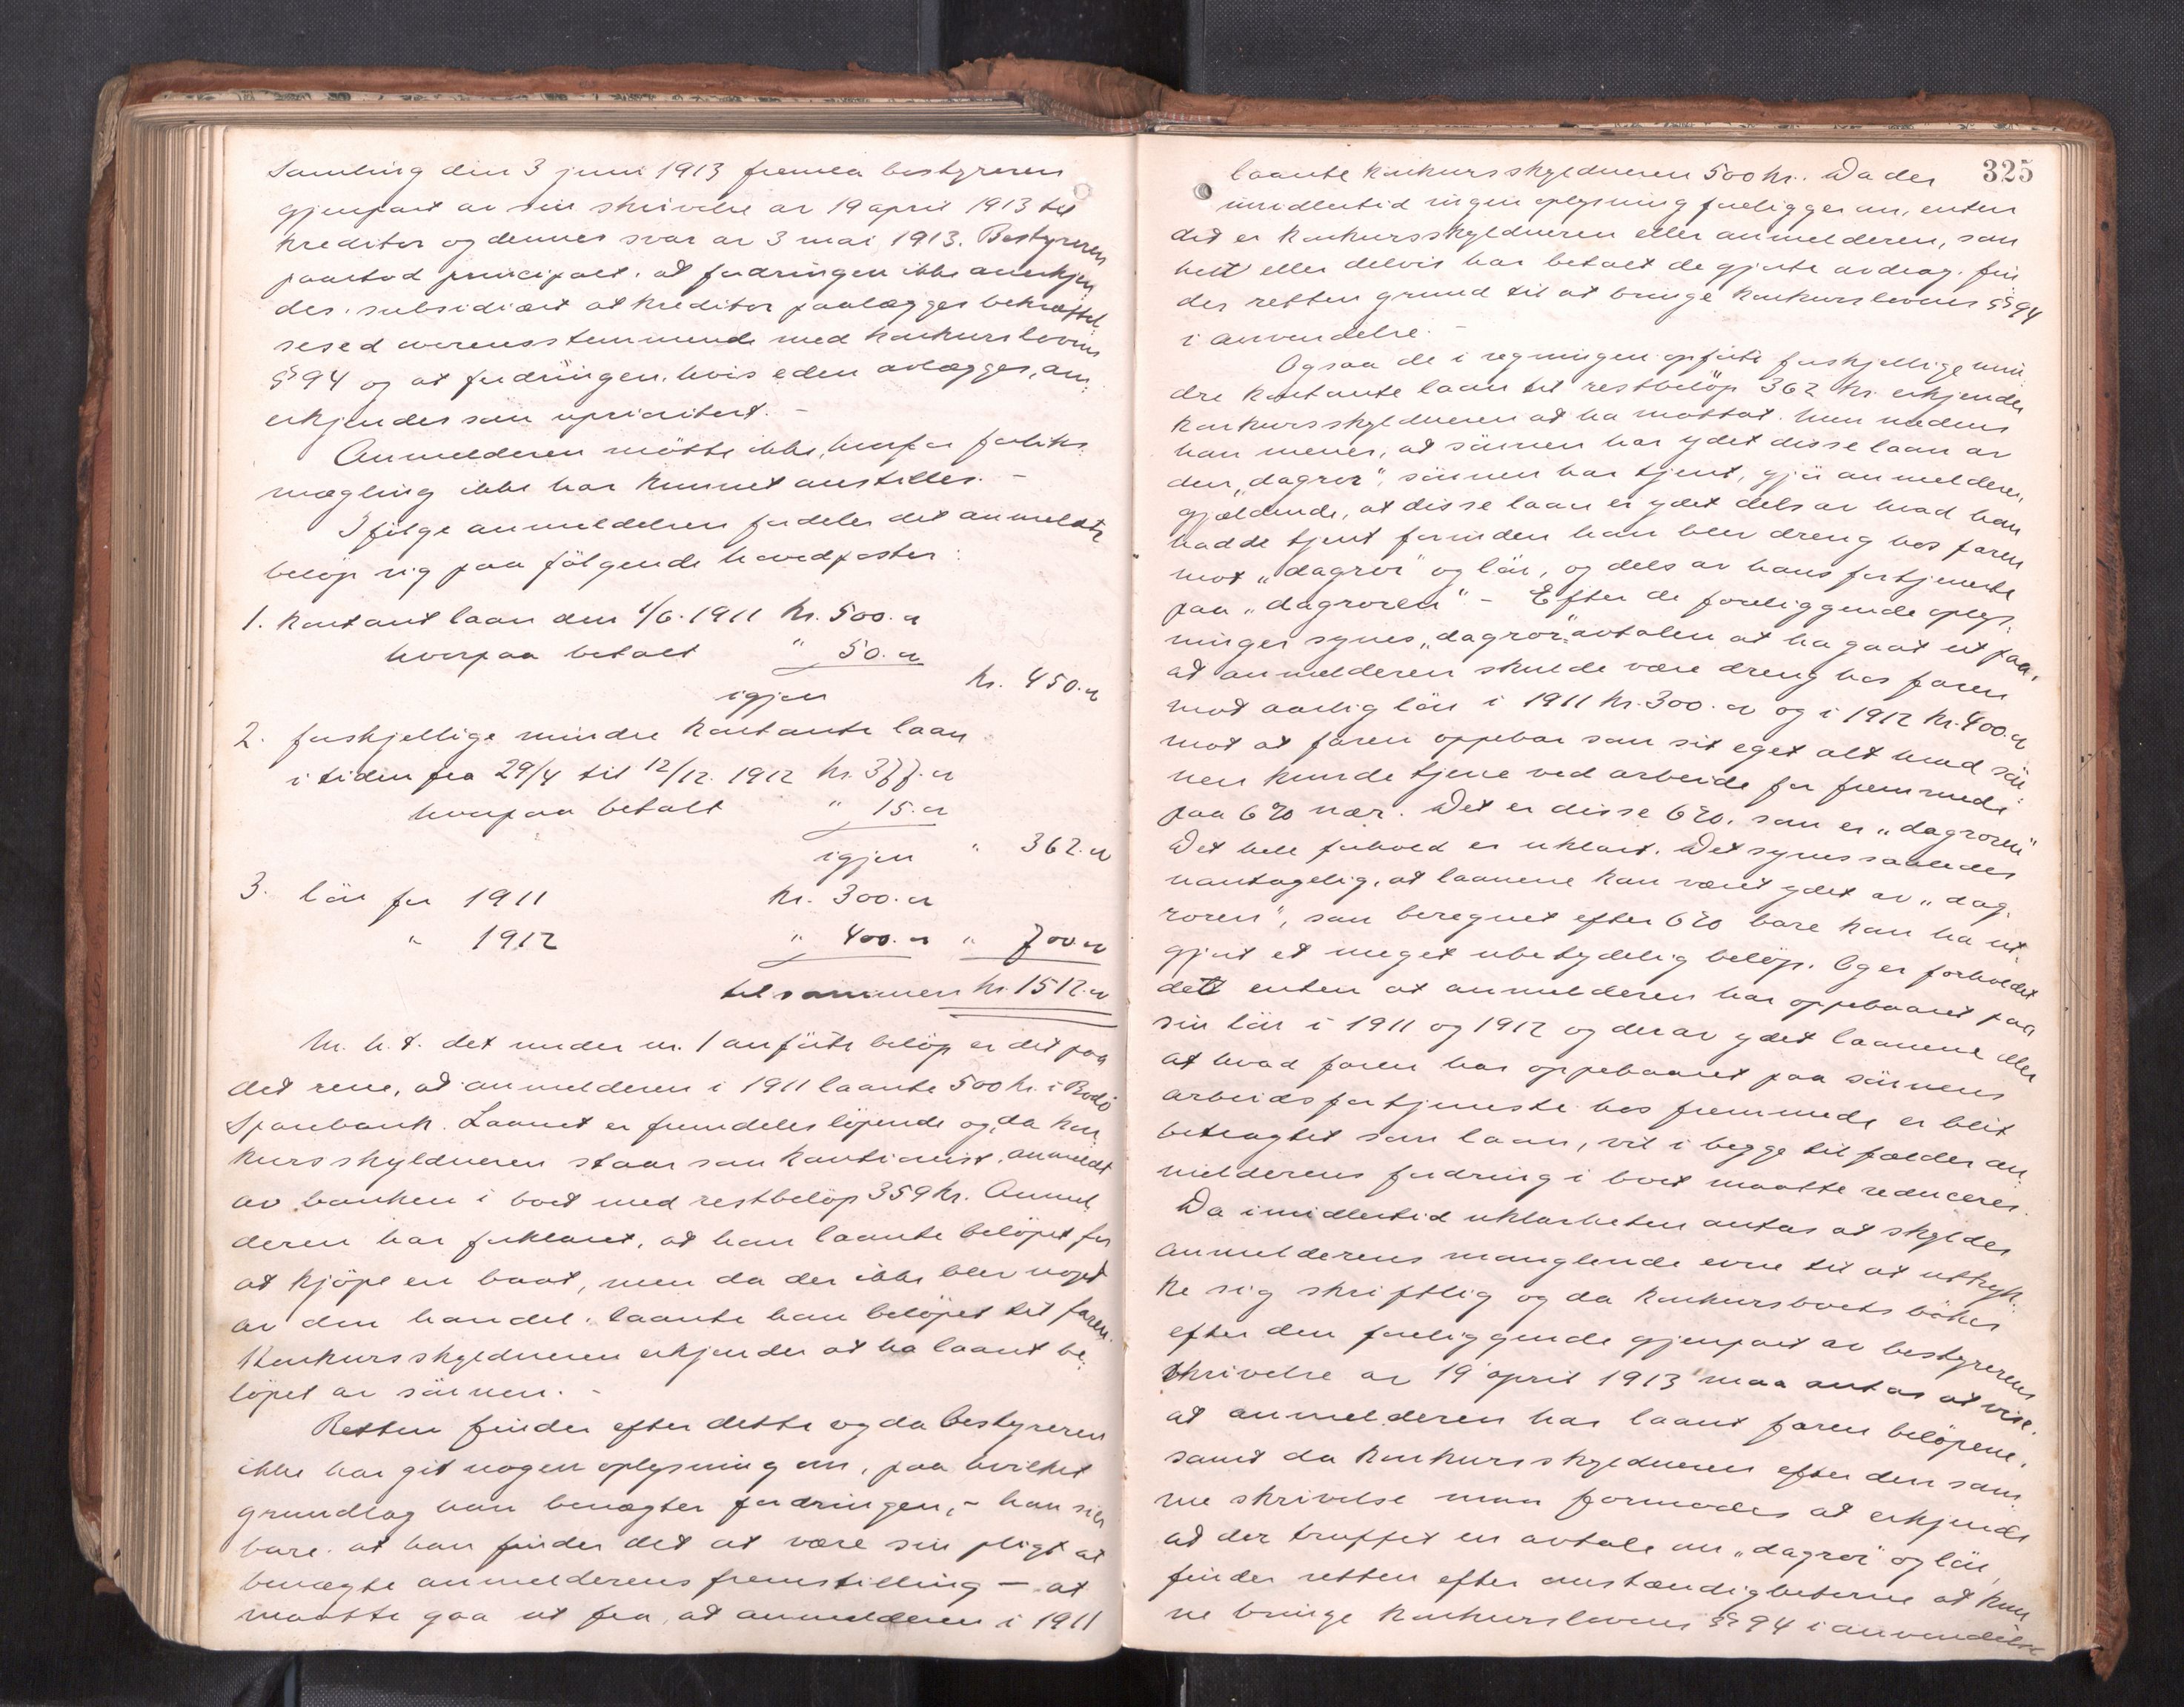 Samling den 3 juni 1913 fremla bestyreren
gjenpart av sin skrivelse av 19 april 1913 til
kreditor og dennes svar av 3 mai 1913. Bestyreren
paastod principalt, at fordringen ikke anerkjen-
des, subsidiært at kreditor paalægges bekræftel-
sesed overensstemmende med konkurslovens
§ 94 og at fordringen, hvis eden avlægges, an-
erkjendes som uprioritert. –
Anmelderen møtte ikke, hvorfor forliks-
mægling ikke har kunnet anstilles. –
Ifølge anmeldelsen fordeler det anmeldte
beløp sig paa følgende hovedposter:
1. kontant laan den 1/6. 1911 kr. 500.00
hvorpaa betalt " 50.00
igjen kr. 450.00
2. forskjellige mindre kontante laan
i tiden fra 29/4 til 12/12. 1912 kr. 377.00
hvorpaa betalt " 15.00
igjen " 362.00
3. løn for 1911 kr. 300.00
" 1912 " 400.00 " 700.00
tilsammen kr. 1512.00
M. h. t. det under nr. 1 anførte beløp er det paa
det rene, at anmelderen i 1911 laante 500 kr. i Bodø
Sparebank. Laanet er fremdeles løpende og, da kon-
kursskyldneren staar som kautionist, anmeldt
av banken i boet med restbeløp 359 kr. Anmel-
deren har forklaret, at han laante beløpet for
at kjøpe en baat, men da der ikke blev noget
av den handel, laante han beløpet til faren.
Konkursskyldneren erkjender at ha laant be-
løpet av sønnen. –
Retten finder efter dette og da bestyreren
ikke har git nogen oplysning om, paa hvilket
grundlag han benægter fordringen, – han sier
bare at han finder det at være sin pligt at
benægte anmelderens fremstilling – at
maatte gaa ut fra, at anmelderen i 1911
325
laante konkursskyldneren 500 kr. Da der
imidlertid ingen oplysning foreligger om, enten
det er konkursskyldneren eller anmelderen, som
helt eller delvis har betalt de gjorte avdrag, fin-
der retten grund til at bringe konkurslovens § 94
i anvendelse. –
Ogsaa de i regningen opførte forskjellige min-
dre kontante laan til restbeløp 362 kr. erkjender
konkursskyldneren at ha mottat. Men medens
han mener, at sønnen har ydet disse laan av
den "dagror", sønnen har tjent, gjør anmelderen
gjældende, at disse laan er ydet dels av hvad han
hadde tjent forinden han blev dreng hos faren
mot "dagror" og løn, og dels av hans fortjeneste
paa "dagroren" – Efter de foreliggende oplys-
ninger synes "dagror"avtalen at ha gaat ut paa,
at anmelderen skulde være dreng hos faren
mot aarlig løn i 1911 kr. 300.00 og i 1912 kr. 400.00
mot at faren oppebar som sit eget alt hvad søn-
nen kunde tjene ved arbeide for fremmede
paa 6 % nær. Det er disse 6 %, som er "dagroren"
Det hele forhold er uklart. Det synes saaledes
uantagelig, at laanene kan været ydet av "dag-
roren", som beregnet efter 6 % bare kan ha ut-
gjort et meget ubetydelig beløp. Og er forholdet
det enten at anmelderen har oppebaaret paa
sin løn i 1911 og 1912 og derav ydet laanene eller
at hvad faren har oppebaaret paa sønnens
arbeidsfortjeneste hos fremmede er blit
betragtet som laan, vil i begge tilfælder an-
melderens fordring i boet maatte reduceres.
Da imidlertid uklarheten antas at skyldes
anmelderens manglende evne til at uttryk-
ke sig skriftlig og da konkursboets bøker
efter den foreliggende gjenpart av bestyrerens
skrivelse av 19 april 1913 maa antas at vise,
at anmelderen har laant faren beløpene,
samt da konkursskyldneren efter den sam-
me skrivelse maa formodes at erkjende
at der truffet en avtale om "dagror" og løn,
finder retten efter omstændigheterne at kun-
ne bringe konkurslovens § 94 i anvendelse